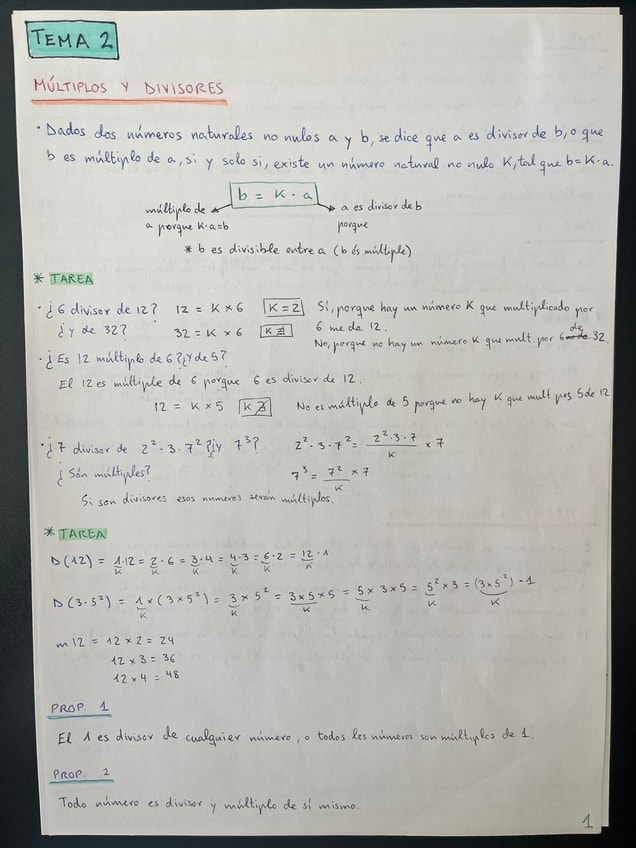 TEMA 2
MÚLTIPLOS Y DIVISORES
· Dados dos números naturales no nulos a y b, se dice que a es divisor de b, o que
b es múltiplo de a, si y solo si, existe un número natural no nulo K, tal que b = K · a.
b = K · a
múltiplo de
a porque K·a=b
a es divisor de b
porque
* b es divisible entre a (b és múltiple)
* TAREA
· ¿6 divisor de 12? 12 = K × 6 K = 2 Sí, porque hay un número K que multiplicado por
6 me da 12.
¿y de 32? 32 = K × 6 K ∄ No, porque no hay un número K que mult. por 6 de 32.
· ¿Es 12 múltiplo de 6? ¿y de 5?
El 12 es múltiple de 6 porque 6 es divisor de 12.
12 = K × 5 K ∄ No es múltiplo de 5 porque no hay K que mult por 5 de 12
· ¿7 divisor de 2² · 3 · 7²? ¿y 7³? 2² · 3 · 7² = 2² · 3 · 7 × 7
K
¿Són múltiples? 7³ = 7² × 7
K
Si son divisores esos números serán múltiplos.
* TAREA
D(12) = 1·12 = 2 · 6 = 3 · 4 = 4 · 3 = 6 · 2 = 12 · 1
K K K K K K
D(3·5²) = 1 × (3 × 5²) = 3 × 5² = 3 × 5 × 5 = 5 × 3 × 5 = 5² × 3 = (3 × 5²) · 1
K K K K K K
m 12 = 12 × 2 = 24
12 × 3 = 36
12 × 4 = 48
PROP. 1
El 1 es divisor de cualquier número, o todos los números son múltiplos de 1.
PROP. 2
Todo número es divisor y múltiplo de sí mismo.
1